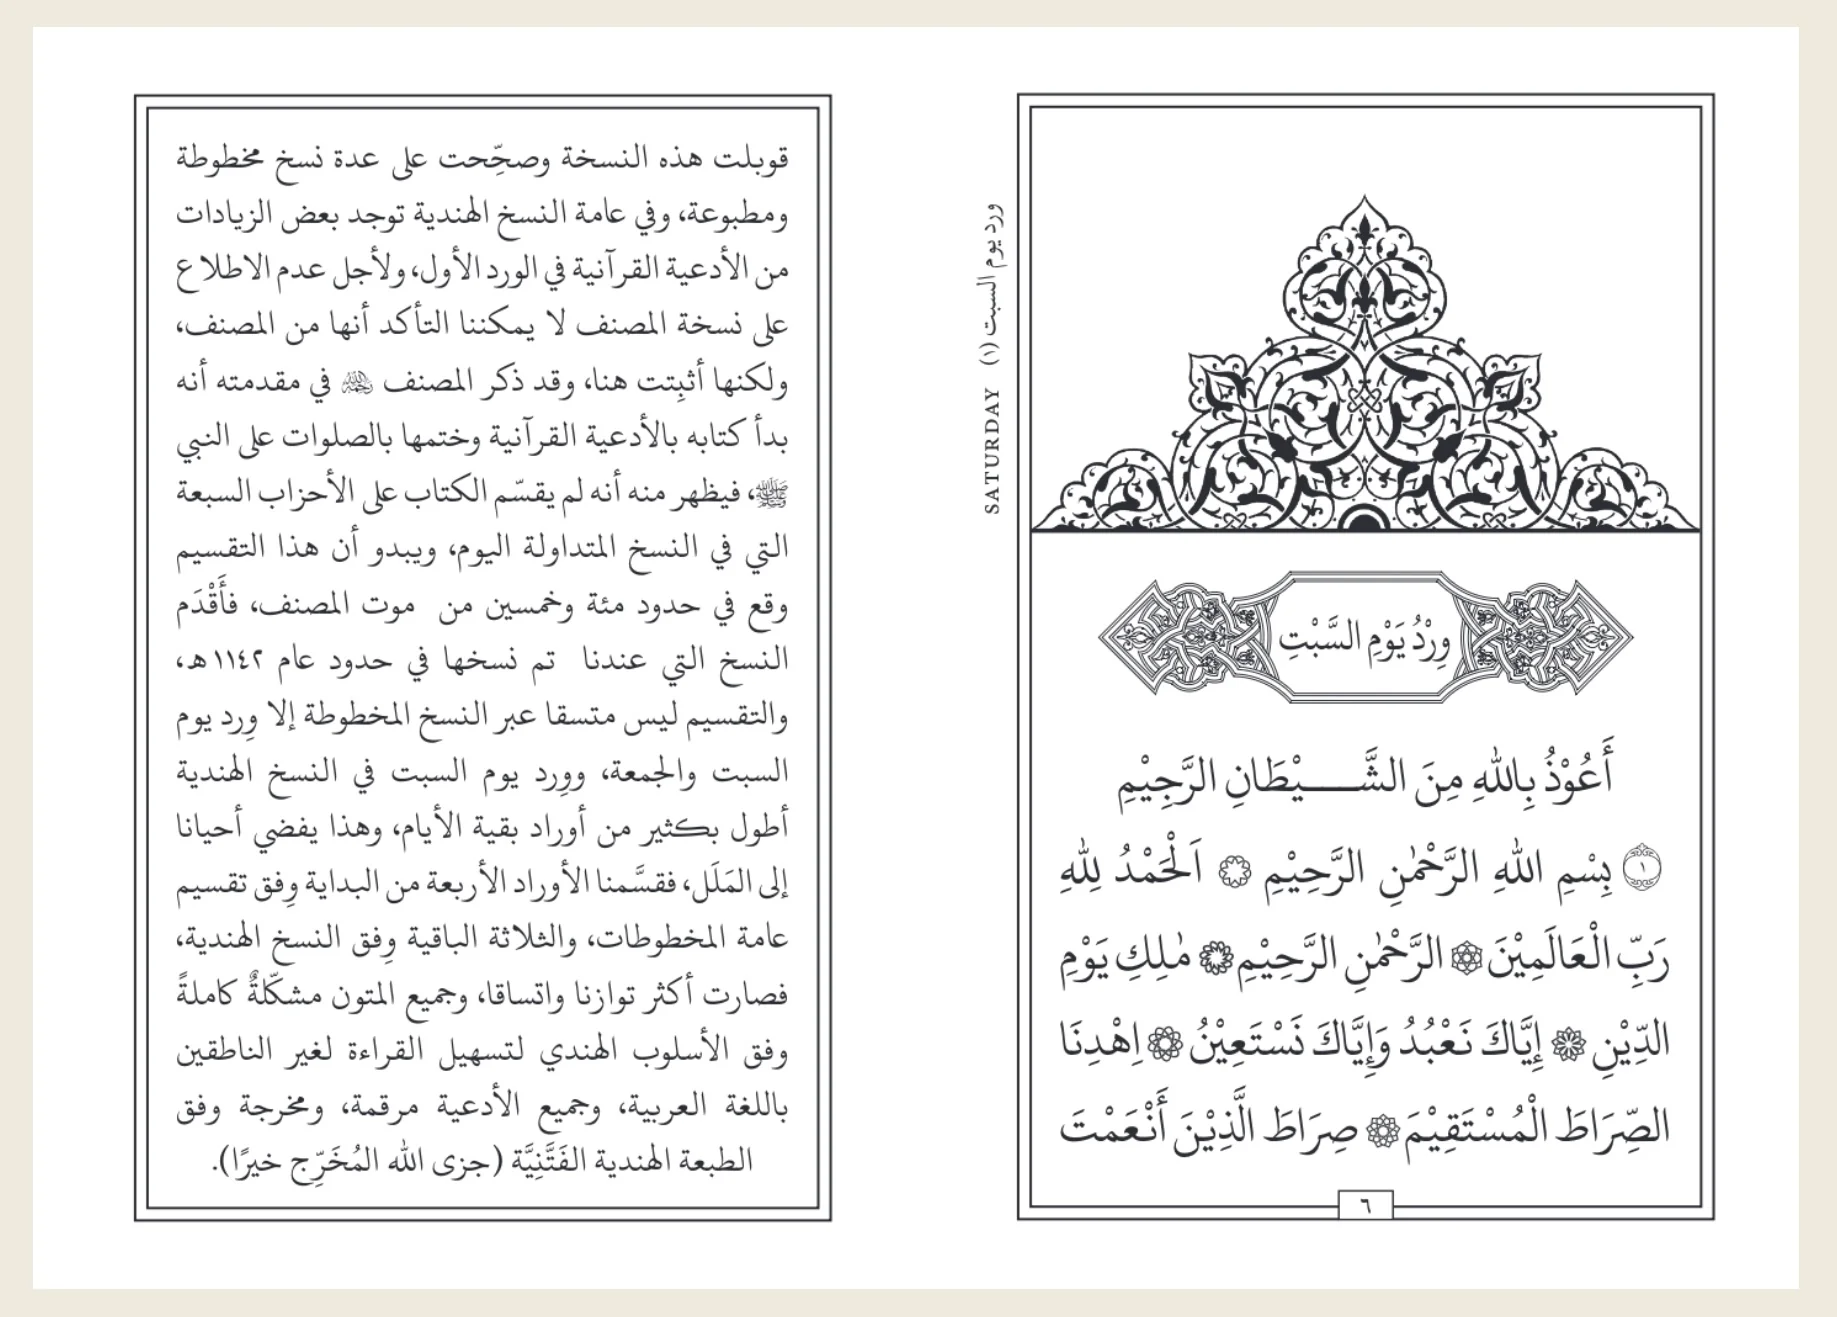 ورد يوم السبت (١) SATURDAY
وِرْدُ يَوْمِ السَّبْتِ
أَعُوْذُ بِاللهِ مِنَ الشَّـــيْطَانِ الرَّجِيْمِ
١ بِسْمِ اللهِ الرَّحْمٰنِ الرَّحِيْمِ ۞ اَلْحَمْدُ لِلّٰهِ
رَبِّ الْعَالَمِيْنَ ۞ الرَّحْمٰنِ الرَّحِيْمِ ۞ مٰلِكِ يَوْمِ
الدِّيْنِ ۞ إِيَّاكَ نَعْبُدُ وَإِيَّاكَ نَسْتَعِيْنُ ۞ اِهْدِنَا
الصِّرَاطَ الْمُسْتَقِيْمَ ۞ صِرَاطَ الَّذِيْنَ أَنْعَمْتَ
٦
قوبلت هذه النسخة وصحِّحت على عدة نسخ مخطوطة
ومطبوعة، وفي عامة النسخ الهندية توجد بعض الزيادات
من الأدعية القرآنية في الورد الأول، ولأجل عدم الاطلاع
على نسخة المصنف لا يمكننا التأكد أنها من المصنف،
ولكنها أثبِتت هنا، وقد ذكر المصنف رحمه الله في مقدمته أنه
بدأ كتابه بالأدعية القرآنية وختمها بالصلوات على النبي
ﷺ، فيظهر منه أنه لم يقسّم الكتاب على الأحزاب السبعة
التي في النسخ المتداولة اليوم، ويبدو أن هذا التقسيم
وقع في حدود مئة وخمسين من موت المصنف، فأَقْدَم
النسخ التي عندنا تم نسخها في حدود عام ١١٤٢هـ،
والتقسيم ليس متسقا عبر النسخ المخطوطة إلا وِرد يوم
السبت والجمعة، ووِرد يوم السبت في النسخ الهندية
أطول بكثير من أوراد بقية الأيام، وهذا يفضي أحيانا
إلى المَلَل، فقسَّمنا الأوراد الأربعة من البداية وِفق تقسيم
عامة المخطوطات، والثلاثة الباقية وِفق النسخ الهندية،
فصارت أكثر توازنا واتساقا، وجميع المتون مشكّلةٌ كاملةً
وفق الأسلوب الهندي لتسهيل القراءة لغير الناطقين
باللغة العربية، وجميع الأدعية مرقمة، ومخرجة وفق
الطبعة الهندية الفَتَّنِيَّة (جزى الله المُخَرِّج خيرًا).